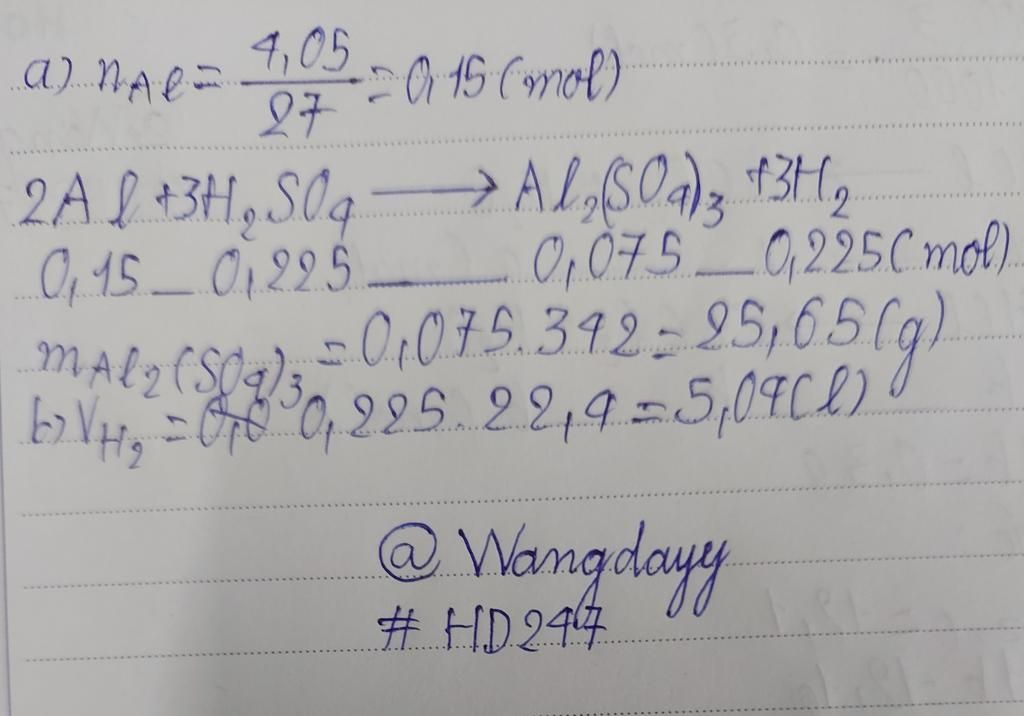 a) nAl = 4,05/27 = 0,15 (mol)
2Al + 3H₂SO₄ ⟶ Al₂(SO₄)₃ + 3H₂
0,15 _ 0,225 ___ 0,075 _ 0,225 (mol)
mAl₂(SO₄)₃ = 0,075.342 = 25,65 (g)
b) VH₂ = 0,0 0,225.22,4 = 5,04 (l)
@ Wangdayy
# HD247